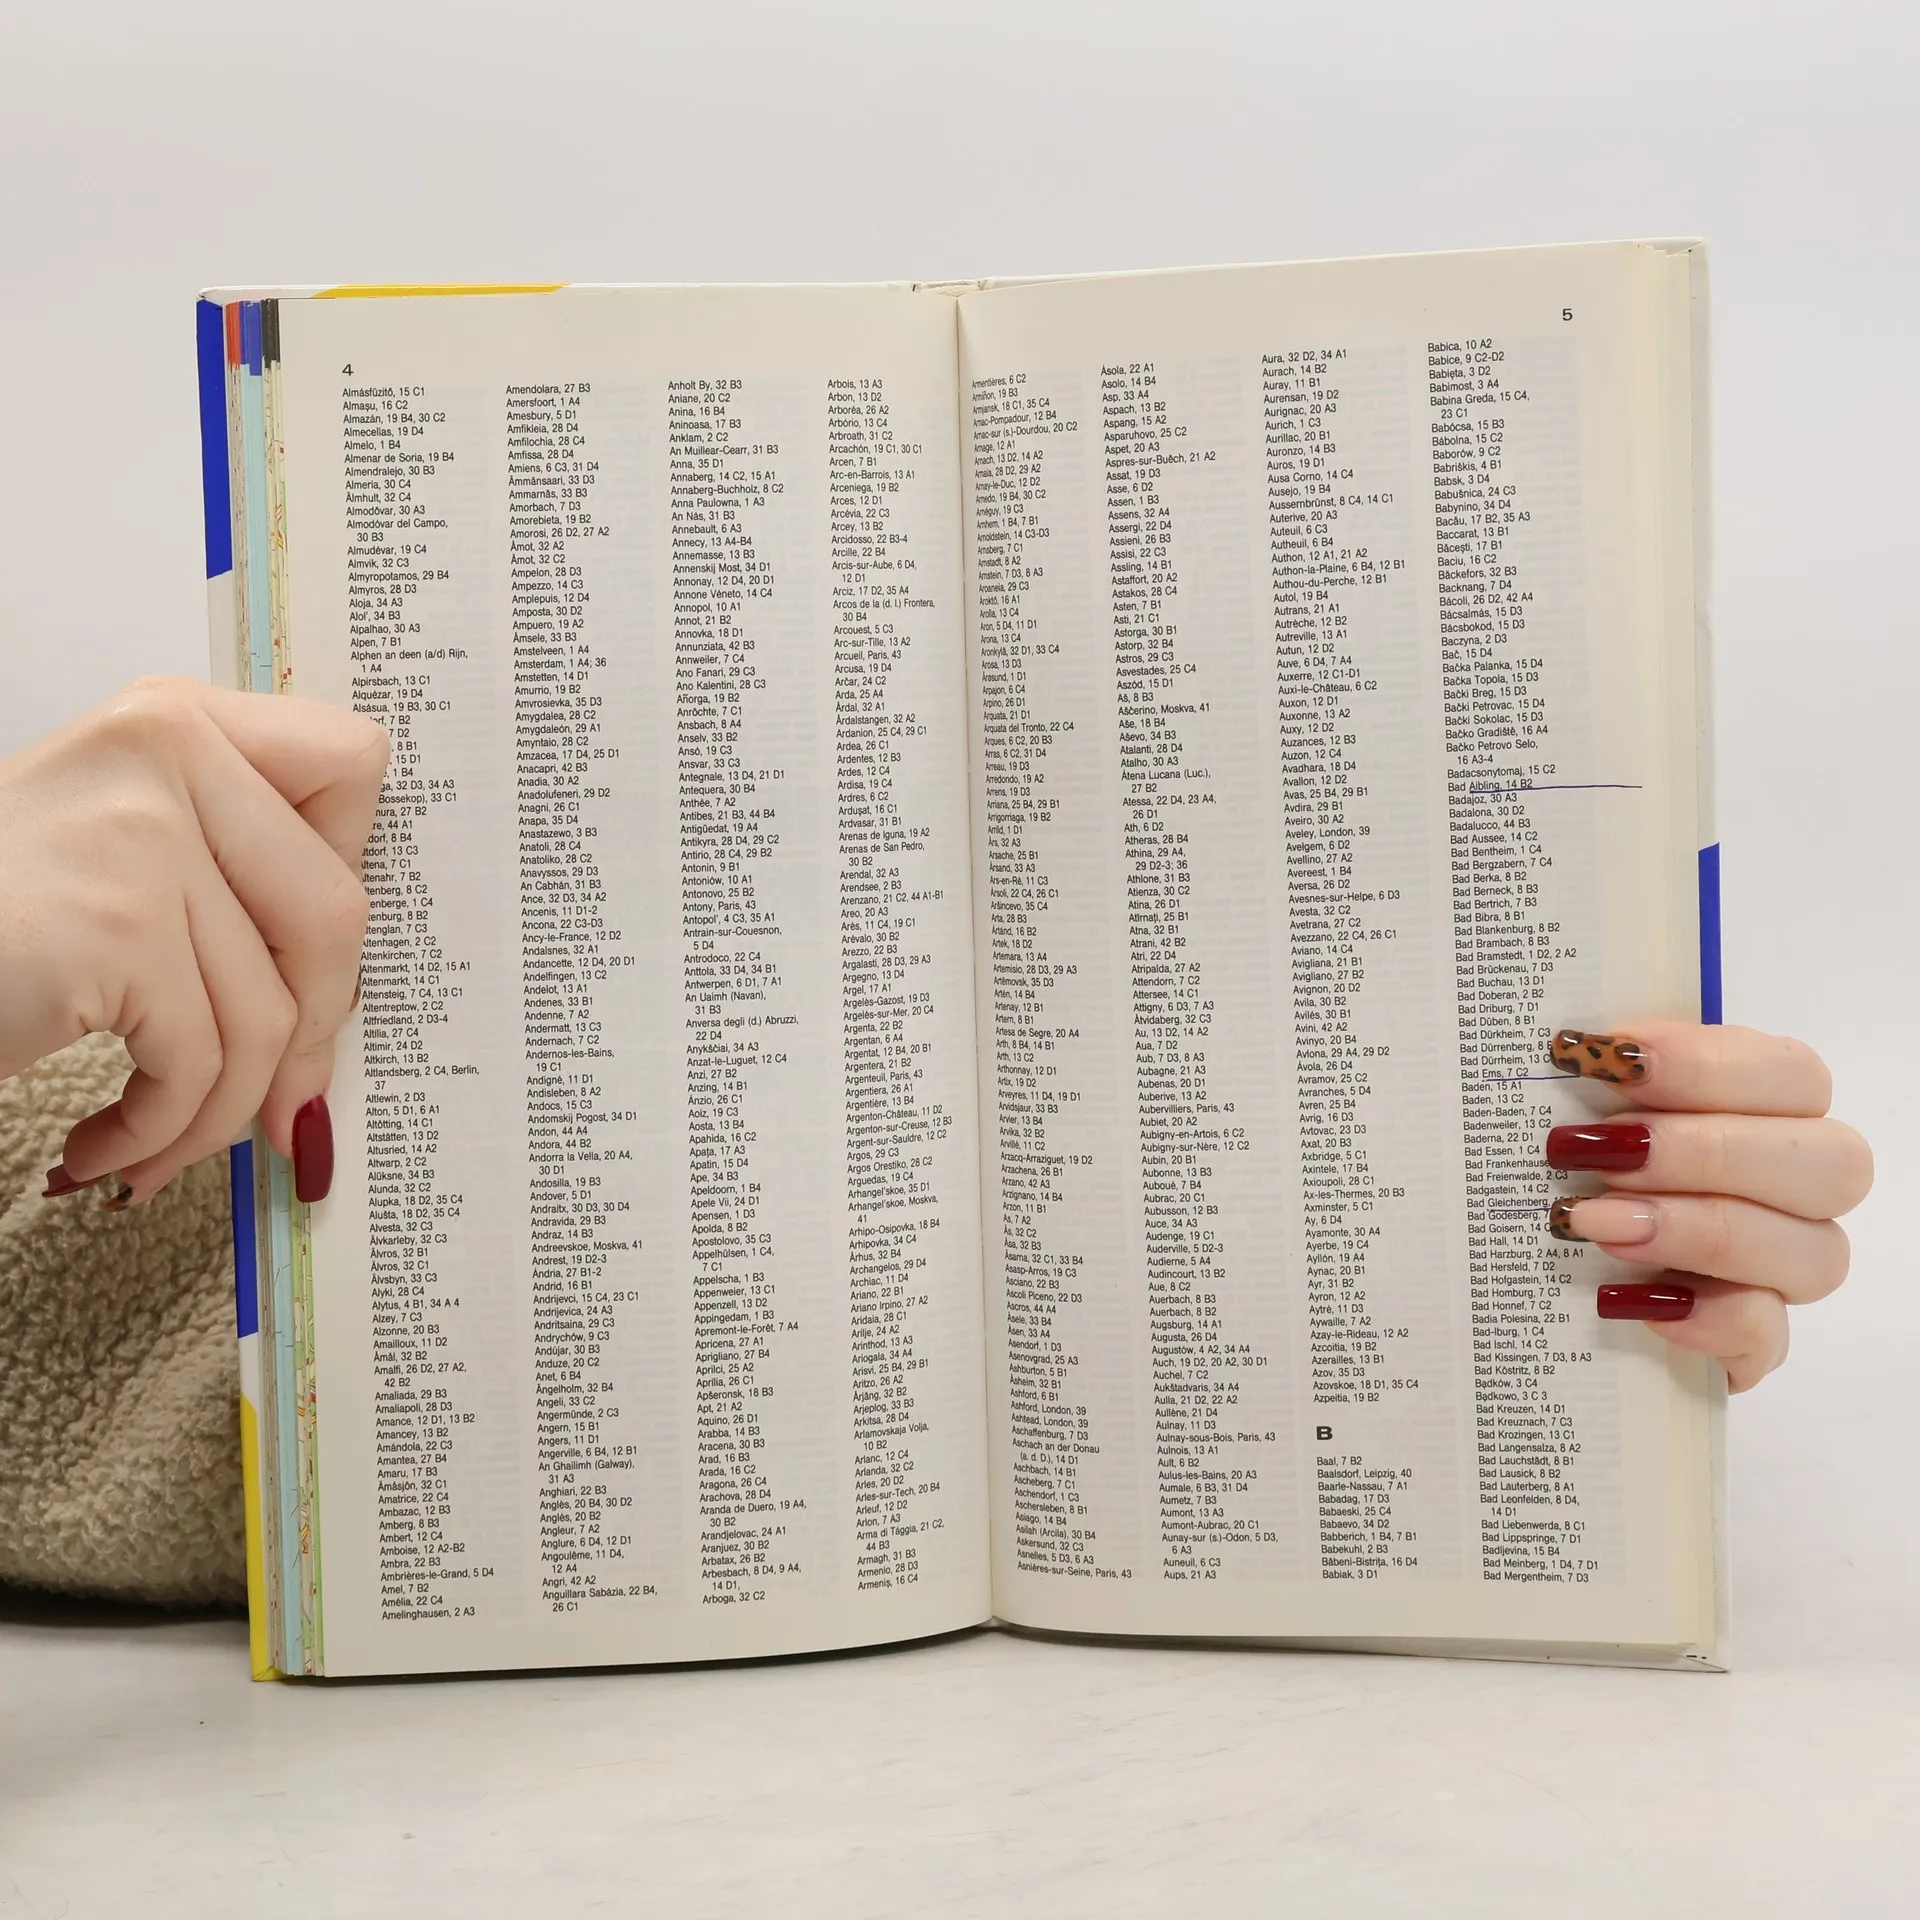 4
Almásfüzitő, 15 C1
Almaşu, 16 C2
Almazán, 19 B4, 30 C2
Almecellas, 19 D4
Almelo, 1 B4
Almenar de Soria, 19 B4
Almendralejo, 30 B3
Almeria, 30 C4
Älmhult, 32 C4
Almodôvar, 30 A3
Almodóvar del Campo,
30 B3
Almudévar, 19 C4
Almvik, 32 C3
Almyropotamos, 29 B4
Almyros, 28 D3
Aloja, 34 A3
Alol', 34 B3
Alpalhao, 30 A3
Alpen, 7 B1
Alphen an deen (a/d) Rijn,
1 A4
Alpirsbach, 13 C1
Alquézar, 19 D4
Alsásua, 19 B3, 30 C1
7 B2
7 D2
8 B1
15 D1
1 B4
32 D3, 34 A3
Bossekop), 33 C1
27 B2
44 A1
8 B4
13 C3
Altena, 7 C1
Altenahr, 7 B2
8 C2
1 C4
8 B2
7 C3
Altenhagen, 2 C2
Altenkirchen, 7 C2
Altenmarkt, 14 D2, 15 A1
Altenmarkt, 14 C1
Altensteig, 7 C4, 13 C1
Altentreptow, 2 C2
Altfriedland, 2 D3-4
Altilia, 27 C4
Altimir, 24 D2
Altkirch, 13 B2
Altlandsberg, 2 C4, Berlin,
37
Altlewin, 2 D3
Alton, 5 D1, 6 A1
Altötting, 14 C1
Altstätten, 13 D2
Altusried, 14 A2
Altwarp, 2 C2
Alūksne, 34 B3
Alunda, 32 C2
Alupka, 18 D2, 35 C4
Alušta, 18 D2, 35 C4
Alvesta, 32 C3
Älvkarleby, 32 C3
Älvros, 32 B1
Älvros, 32 C1
Älvsbyn, 33 C3
Alyki, 28 C4
Alytus, 4 B1, 34 A 4
Alzey, 7 C3
Alzonne, 20 B3
Amailloux, 11 D2
Åmål, 32 B2
Amalfi, 26 D2, 27 A2,
42 B2
Amaliada, 29 B3
Amaliapoli, 28 D3
Amance, 12 D1, 13 B2
Amancey, 13 B2
Amándola, 22 C3
Amantea, 27 B4
Amaru, 17 B3
Åmåsjön, 32 C1
Amatrice, 22 C4
Ambazac, 12 B3
Amberg, 8 B3
Ambert, 12 C4
Amboise, 12 A2-B2
Ambra, 22 B3
Ambrières-le-Grand, 5 D4
Amel, 7 B2
Amélia, 22 C4
Amelinghausen, 2 A3
Amendolara, 27 B3
Amersfoort, 1 A4
Amesbury, 5 D1
Amfikleia, 28 D4
Amfilochia, 28 C4
Amfissa, 28 D4
Amiens, 6 C3, 31 D4
Ämmänsaari, 33 D3
Ammarnäs, 33 B3
Amorbach, 7 D3
Amorebieta, 19 B2
Amorosi, 26 D2, 27 A2
Åmot, 32 A2
Åmot, 32 C2
Ampelon, 28 D3
Ampezzo, 14 C3
Amplepuis, 12 D4
Amposta, 30 D2
Ampuero, 19 A2
Åmsele, 33 B3
Amstelveen, 1 A4
Amsterdam, 1 A4; 36
Amstetten, 14 D1
Amurrio, 19 B2
Amvrosievka, 35 D3
Amygdalea, 28 C2
Amygdaleón, 29 A1
Amyntaio, 28 C2
Amzacea, 17 D4, 25 D1
Anacapri, 42 B3
Anadia, 30 A2
Anadolufeneri, 29 D2
Anagni, 26 C1
Anapa, 35 D4
Anastazewo, 3 B3
Anatoli, 28 C4
Anatoliko, 28 C2
Anavyssos, 29 D3
An Cabhán, 31 B3
Ance, 32 D3, 34 A2
Ancenis, 11 D1-2
Ancona, 22 C3-D3
Ancy-le-France, 12 D2
Andalsnes, 32 A1
Andancette, 12 D4, 20 D1
Andelfingen, 13 C2
Andelot, 13 A1
Andenes, 33 B1
Andenne, 7 A2
Andermatt, 13 C3
Andernach, 7 C2
Andernos-les-Bains,
19 C1
Andigné, 11 D1
Andisleben, 8 A2
Andocs, 15 C3
Andomskij Pogost, 34 D1
Andon, 44 A4
Andora, 44 B2
Andorra la Vella, 20 A4,
30 D1
Andosilla, 19 B3
Andover, 5 D1
Andraitx, 30 D3, 30 D4
Andravida, 29 B3
Andraz, 14 B3
Andreevskoe, Moskva, 41
Andrest, 19 D2-3
Ándria, 27 B1-2
Andrid, 16 B1
Andrijevci, 15 C4, 23 C1
Andrijevica, 24 A3
Andritsaina, 29 C3
Andrychów, 9 C3
Andújar, 30 B3
Anduze, 20 C2
Anet, 6 B4
Ängelholm, 32 B4
Angeli, 33 C2
Angermünde, 2 C3
Angern, 15 B1
Angers, 11 D1
Angerville, 6 B4, 12 B1
An Ghailimh (Galway),
31 A3
Anghiari, 22 B3
Anglès, 20 B4, 30 D2
Anglès, 20 B2
Angleur, 7 A2
Anglure, 6 D4, 12 D1
Angoulème, 11 D4,
12 A4
Angri, 42 A2
Anguillara Sabázia, 22 B4,
26 C1
Anholt By, 32 B3
Aniane, 20 C2
Anina, 16 B4
Aninoasa, 17 B3
Anklam, 2 C2
An Muillear-Cearr, 31 B3
Anna, 35 D1
Annaberg, 14 C2, 15 A1
Annaberg-Buchholz, 8 C2
Anna Paulowna, 1 A3
An Nás, 31 B3
Annebault, 6 A3
Annecy, 13 A4-B4
Annemasse, 13 B3
Annenskij Most, 34 D1
Annonay, 12 D4, 20 D1
Annone Véneto, 14 C4
Annopol, 10 A1
Annot, 21 B2
Annovka, 18 D1
Annunziata, 42 B3
Annweiler, 7 C4
Ano Fanari, 29 C3
Ano Kalentini, 28 C3
Añorga, 19 B2
Anröchte, 7 C1
Ansbach, 8 A4
Anselv, 33 B2
Ansó, 19 C3
Ansvar, 33 C3
Antegnale, 13 D4, 21 D1
Antequera, 30 B4
Anthée, 7 A2
Antibes, 21 B3, 44 B4
Antigüedat, 19 A4
Antikyra, 28 D4, 29 C2
Antirio, 28 C4, 29 B2
Antonin, 9 B1
Antoniów, 10 A1
Antonovo, 25 B2
Antony, Paris, 43
Antopol', 4 C3, 35 A1
Antrain-sur-Couesnon,
5 D4
Antrodoco, 22 C4
Anttola, 33 D4, 34 B1
Antwerpen, 6 D1, 7 A1
An Uaimh (Navan),
31 B3
Anversa degli (d.) Abruzzi,
22 D4
Anykščiai, 34 A3
Anzat-le-Luguet, 12 C4
Anzi, 27 B2
Anzing, 14 B1
Ánzio, 26 C1
Aoiz, 19 C3
Aosta, 13 B4
Apahida, 16 C2
Apața, 17 A3
Apatin, 15 D4
Ape, 34 B3
Apeldoorn, 1 B4
Apele Vii, 24 D1
Apensen, 1 D3
Apolda, 8 B2
Apostolovo, 35 C3
Appelhülsen, 1 C4,
7 C1
Appelscha, 1 B3
Appenweier, 13 C1
Appenzell, 13 D2
Appingedam, 1 B3
Apremont-le-Forêt, 7 A4
Apricena, 27 A1
Aprigliano, 27 B4
Aprilci, 25 A2
Aprilia, 26 C1
Apšeronsk, 18 B3
Apt, 21 A2
Aquino, 26 D1
Arabba, 14 B3
Aracena, 30 B3
Arad, 16 B3
Arada, 16 C2
Aragona, 26 C4
Arachova, 28 D4
Aranda de Duero, 19 A4,
30 B2
Arandjelovac, 24 A1
Aranjuez, 30 B2
Arbatax, 26 B2
Arbesbach, 8 D4, 9 A4,
14 D1,
Arboga, 32 C2
Arbois, 13 A3
Arbon, 13 D2
Arboréa, 26 A2
Arbório, 13 C4
Arbroath, 31 C2
Arcachón, 19 C1, 30 C1
Arcen, 7 B1
Arc-en-Barrois, 13 A1
Arceniega, 19 B2
Arces, 12 D1
Arcévia, 22 C3
Arcey, 13 B2
Arcidosso, 22 B3-4
Arcille, 22 B4
Arcis-sur-Aube, 6 D4,
12 D1
Arciz, 17 D2, 35 A4
Arcos de la (d. l.) Frontera,
30 B4
Arcouest, 5 C3
Arc-sur-Tille, 13 A2
Arcueil, Paris, 43
Arcusa, 19 D4
Arčar, 24 C2
Arda, 25 A4
Årdal, 32 A1
Årdalstangen, 32 A2
Ardanion, 25 C4, 29 C1
Ardea, 26 C1
Ardentes, 12 B3
Ardes, 12 C4
Ardisa, 19 C4
Ardres, 6 C2
Ardușat, 16 C1
Ardvasar, 31 B1
Arenas de Iguna, 19 A2
Arenas de San Pedro,
30 B2
Arendal, 32 A2
Arendsee, 2 B3
Arenzano, 21 C2, 44 A1-B1
Areo, 20 A3
Arès, 11 C4, 19 C1
Arévalo, 30 B2
Arezzo, 22 B3
Argalasti, 28 D3, 29 A3
Argegno, 13 D4
Argel, 17 A1
Argelès-Gazost, 19 D3
Argelès-sur-Mer, 20 C4
Argenta, 22 B2
Argentan, 6 A4
Argentat, 12 B4, 20 B1
Argentera, 21 B2
Argenteuil, Paris, 43
Argentiera, 26 A1
Argentière, 13 B4
Argenton-Château, 11 D2
Argenton-sur-Creuse, 12 B3
Argent-sur-Sauldre, 12 C2
Argos, 29 C3
Argos Orestiko, 28 C2
Arguedas, 19 C4
Arhangel'skoe, 35 D1
Arhangel'skoe, Moskva,
41
Arhipo-Osipovka, 18 B4
Arhipovka, 34 C4
Århus, 32 B4
Archangelos, 29 D4
Archiac, 11 D4
Ariano, 22 B1
Ariano Irpino, 27 A2
Aridaia, 28 C1
Arilje, 24 A2
Arinthod, 13 A3
Ariogala, 34 A4
Arisvi, 25 B4, 29 B1
Aritzo, 26 A2
Årjäng, 32 B2
Arjeplog, 33 B3
Arkitsa, 28 D4
Arlamovskaja Volja,
10 B2
Arlanc, 12 C4
Arlanda, 32 C2
Arles, 20 D2
Arles-sur-Tech, 20 B4
Arleuf, 12 D2
Arlon, 7 A3
Arma di Tággia, 21 C2,
44 B3
Armagh, 31 B3
Armenio, 28 D3
Armeniș, 16 C4
5
Armentières, 6 C2
Armiñon, 19 B3
Armjansk, 18 C1, 35 C4
Arnac-Pompadour, 12 B4
Arnac-sur (s.)-Dourdou, 20 C2
Arnage, 12 A1
Arnach, 13 D2, 14 A2
Arnaia, 28 D2, 29 A2
Arnay-le-Duc, 12 D2
Arnedo, 19 B4, 30 C2
Arnéguy, 19 C3
Arnhem, 1 B4, 7 B1
Arnoldstein, 14 C3-D3
Arnsberg, 7 C1
Arnstadt, 8 A2
Arnstein, 7 D3, 8 A3
Aroaneia, 29 C3
Aroktő, 16 A1
Arolla, 13 C4
Aron, 5 D4, 11 D1
Arona, 13 C4
Aronkylä, 32 D1, 33 C4
Arosa, 13 D3
Årøsund, 1 D1
Arpajon, 6 C4
Arpino, 26 D1
Arquata, 21 D1
Arquata del Tronto, 22 C4
Arques, 6 C2, 20 B3
Arras, 6 C2, 31 D4
Arreau, 19 D3
Arredondo, 19 A2
Arrens, 19 D3
Arriana, 25 B4, 29 B1
Arrigorriaga, 19 B2
Arrild, 1 D1
Års, 32 A3
Arsache, 25 B1
Årsand, 33 A3
Ars-en-Ré, 11 C3
Ársoli, 22 C4, 26 C1
Aršincevo, 35 C4
Arta, 28 B3
Ártánd, 16 B2
Artek, 18 D2
Artemara, 13 A4
Artemisio, 28 D3, 29 A3
Artëmovsk, 35 D3
Artén, 14 B4
Artenay, 12 B1
Artern, 8 B1
Artesa de Segre, 20 A4
Arth, 8 B4, 14 B1
Arth, 13 C2
Arthonnay, 12 D1
Artix, 19 D2
Arveyres, 11 D4, 19 D1
Arvidsjaur, 33 B3
Arvier, 13 B4
Arvika, 32 B2
Arvillé, 11 C2
Arzacq-Arraziguet, 19 D2
Arzachena, 26 B1
Arzano, 42 A3
Arzignano, 14 B4
Arzon, 11 B1
As, 7 A2
Ås, 32 C2
Åsa, 32 B3
Åsarna, 32 C1, 33 B4
Asasp-Arros, 19 C3
Asciano, 22 B3
Ascoli Piceno, 22 D3
Ascros, 44 A4
Åsele, 33 B4
Åsen, 33 A4
Asendorf, 1 D3
Asenovgrad, 25 A3
Ashburton, 5 B1
Åsheim, 32 B1
Ashford, 6 B1
Ashford, London, 39
Ashtead, London, 39
Aschaffenburg, 7 D3
Aschach an der Donau
(a. d. D.), 14 D1
Aschbach, 14 B1
Ascheberg, 7 C1
Aschendorf, 1 C3
Aschersleben, 8 B1
Asiago, 14 B4
Asilah (Arcila), 30 B4
Askersund, 32 C3
Asnelles, 5 D3, 6 A3
Asnières-sur-Seine, Paris, 43
Ásola, 22 A1
Asolo, 14 B4
Asp, 33 A4
Aspach, 13 B2
Aspang, 15 A2
Asparuhovo, 25 C2
Aspet, 20 A3
Aspres-sur-Buëch, 21 A2
Assat, 19 D3
Asse, 6 D2
Assen, 1 B3
Assens, 32 A4
Assergi, 22 D4
Assieni, 26 B3
Assisi, 22 C3
Assling, 14 B1
Astaffort, 20 A2
Astakos, 28 C4
Asten, 7 B1
Asti, 21 C1
Astorga, 30 B1
Astorp, 32 B4
Astros, 29 C3
Asvestades, 25 C4
Aszód, 15 D1
Aš, 8 B3
Aščerino, Moskva, 41
Aše, 18 B4
Aševo, 34 B3
Atalanti, 28 D4
Atalho, 30 A3
Átena Lucana (Luc.),
27 B2
Atessa, 22 D4, 23 A4,
26 D1
Ath, 6 D2
Atheras, 28 B4
Athina, 29 A4,
29 D2-3; 36
Athlone, 31 B3
Atienza, 30 C2
Atina, 26 D1
Atîrnați, 25 B1
Atna, 32 B1
Atrani, 42 B2
Atri, 22 D4
Atripalda, 27 A2
Attendorn, 7 C2
Attersee, 14 C1
Attigny, 6 D3, 7 A3
Åtvidaberg, 32 C3
Au, 13 D2, 14 A2
Aua, 7 D2
Aub, 7 D3, 8 A3
Aubagne, 21 A3
Aubenas, 20 D1
Auberive, 13 A2
Aubervilliers, Paris, 43
Aubiet, 20 A2
Aubigny-en-Artois, 6 C2
Aubigny-sur-Nère, 12 C2
Aubin, 20 B1
Aubonne, 13 B3
Aubouè, 7 B4
Aubrac, 20 C1
Aubusson, 12 B3
Auce, 34 A3
Audenge, 19 C1
Auderville, 5 D2-3
Audierne, 5 A4
Audincourt, 13 B2
Aue, 8 C2
Auerbach, 8 B3
Auerbach, 8 B2
Augsburg, 14 A1
Augusta, 26 D4
Augustów, 4 A2, 34 A4
Auch, 19 D2, 20 A2, 30 D1
Auchel, 7 C2
Aukštadvaris, 34 A4
Aulla, 21 D2, 22 A2
Aullène, 21 D4
Aulnay, 11 D3
Aulnay-sous-Bois, Paris, 43
Aulnois, 13 A1
Ault, 6 B2
Aulus-les-Bains, 20 A3
Aumale, 6 B3, 31 D4
Aumetz, 7 B3
Aumont, 13 A3
Aumont-Aubrac, 20 C1
Aunay-sur (s.)-Odon, 5 D3,
6 A3
Auneuil, 6 C3
Aups, 21 A3
Aura, 32 D2, 34 A1
Aurach, 14 B2
Auray, 11 B1
Aurensan, 19 D2
Aurignac, 20 A3
Aurich, 1 C3
Aurillac, 20 B1
Auronzo, 14 B3
Auros, 19 D1
Ausa Corno, 14 C4
Ausejo, 19 B4
Aussernbrünst, 8 C4, 14 C1
Auterive, 20 A3
Auteuil, 6 C3
Autheuil, 6 B4
Authon, 12 A1, 21 A2
Authon-la-Plaine, 6 B4, 12 B1
Authou-du-Perche, 12 B1
Autol, 19 B4
Autrans, 21 A1
Autrèche, 12 B2
Autreville, 13 A1
Autun, 12 D2
Auve, 6 D4, 7 A4
Auxerre, 12 C1-D1
Auxi-le-Château, 6 C2
Auxon, 12 D1
Auxonne, 13 A2
Auxy, 12 D2
Auzances, 12 B3
Auzon, 12 C4
Avadhara, 18 D4
Avallon, 12 D2
Avas, 25 B4, 29 B1
Avdira, 29 B1
Aveiro, 30 A2
Aveley, London, 39
Avelgem, 6 D2
Avellino, 27 A2
Avereest, 1 B4
Aversa, 26 D2
Avesnes-sur-Helpe, 6 D3
Avesta, 32 C2
Avetrana, 27 C2
Avezzano, 22 C4, 26 C1
Aviano, 14 C4
Avigliana, 21 B1
Avigliano, 27 B2
Avignon, 20 D2
Avila, 30 B2
Avilés, 30 B1
Avini, 42 A2
Avinyo, 20 B4
Avlona, 29 A4, 29 D2
Ávola, 26 D4
Avramov, 25 C2
Avranches, 5 D4
Avren, 25 B4
Avrig, 16 D3
Avtovac, 23 D3
Axat, 20 B3
Axbridge, 5 C1
Axintele, 17 B4
Axioupoli, 28 C1
Ax-les-Thermes, 20 B3
Axminster, 5 C1
Ay, 6 D4
Ayamonte, 30 A4
Ayerbe, 19 C4
Ayllón, 19 A4
Aynac, 20 B1
Ayr, 31 B2
Ayron, 12 A2
Aytré, 11 D3
Aywaille, 7 A2
Azay-le-Rideau, 12 A2
Azcoitia, 19 B2
Azerailles, 13 B1
Azov, 35 D3
Azovskoe, 18 D1, 35 C4
Azpeitia, 19 B2
B
Baal, 7 B2
Baalsdorf, Leipzig, 40
Baarle-Nassau, 7 A1
Babadag, 17 D3
Babaeski, 25 C4
Babaevo, 34 D2
Babberich, 1 B4, 7 B1
Babekuhl, 2 B3
Băbeni-Bistrița, 16 D4
Babiak, 3 D1
Babica, 10 A2
Babice, 9 C2-D2
Babięta, 3 D2
Babimost, 3 A4
Babina Greda, 15 C4,
23 C1
Babócsa, 15 B3
Bábolna, 15 C2
Baborów, 9 C2
Babriškis, 4 B1
Babsk, 3 D4
Babušnica, 24 C3
Babynino, 34 D4
Bacău, 17 B2, 35 A3
Baccarat, 13 B1
Băcești, 17 B1
Baciu, 16 C2
Bäckefors, 32 B3
Backnang, 7 D4
Bácoli, 26 D2, 42 A4
Bácsalmás, 15 D3
Bácsbokod, 15 D3
Baczyna, 2 D3
Bač, 15 D4
Bačka Palanka, 15 D4
Bačka Topola, 15 D3
Bački Breg, 15 D3
Bački Petrovac, 15 D4
Bački Sokolac, 15 D3
Bačko Gradište, 16 A4
Bačko Petrovo Selo,
16 A3-4
Badacsonytomaj, 15 C2
Bad Aibling, 14 B2
Badajoz, 30 A3
Badalona, 30 D2
Badalucco, 44 B3
Bad Aussee, 14 C2
Bad Bentheim, 1 C4
Bad Bergzabern, 7 C4
Bad Berka, 8 B2
Bad Berneck, 8 B3
Bad Bertrich, 7 B3
Bad Bibra, 8 B1
Bad Blankenburg, 8 B2
Bad Brambach, 8 B3
Bad Bramstedt, 1 D2, 2 A2
Bad Brückenau, 7 D3
Bad Buchau, 13 D1
Bad Doberan, 2 B2
Bad Driburg, 7 D1
Bad Düben, 8 B1
Bad Dürkheim, 7 C3
Bad Dürrenberg, 8
Bad Dürrheim, 13
Bad Ems, 7 C2
Baden, 15 A1
Baden, 13 C2
Baden-Baden, 7 C4
Badenweiler, 13 C2
Baderna, 22 D1
Bad Essen, 1 C4
Bad Frankenhause
Bad Freienwalde, 2 C3
Badgastein, 14 C2
Bad Gleichenberg,
Bad Godesberg, 7
Bad Goisern, 14
Bad Hall, 14 D1
Bad Harzburg, 2 A4, 8 A1
Bad Hersfeld, 7 D2
Bad Hofgastein, 14 C2
Bad Homburg, 7 C3
Bad Honnef, 7 C2
Badia Polesina, 22 B1
Bad-Iburg, 1 C4
Bad Ischl, 14 C2
Bad Kissingen, 7 D3, 8 A3
Bad Köstritz, 8 B2
Bądków, 3 C4
Bądkowo, 3 C 3
Bad Kreuzen, 14 D1
Bad Kreuznach, 7 C3
Bad Krozingen, 13 C1
Bad Langensalza, 8 A2
Bad Lauchstädt, 8 B1
Bad Lausick, 8 B2
Bad Lauterberg, 8 A1
Bad Leonfelden, 8 D4,
14 D1
Bad Liebenwerda, 8 C1
Bad Lippspringe, 7 D1
Badljevina, 15 B4
Bad Meinberg, 1 D4, 7 D1
Bad Mergentheim, 7 D3